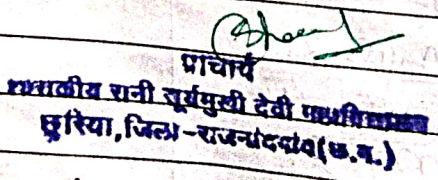 प्राचार्य
शासकीय रानी सूर्यमुखी देवी महाविद्यालय
छुरिया, जिला-राजनांदगांव (छ.ग.)